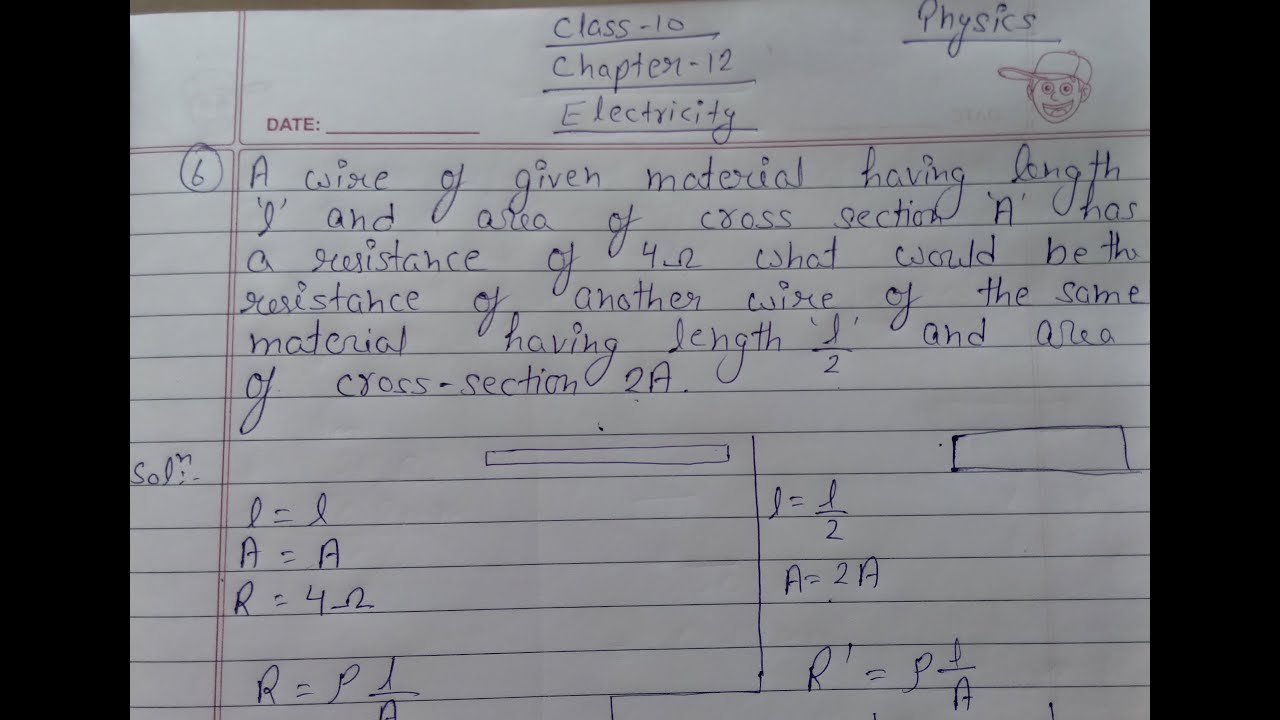 Class-10
Physics
Chapter-12
Electricity
DATE:
6 A wire of given material having length
'l' and area of cross section 'A' has
a resistance of 4Ω what would be the
resistance of another wire of the same
material having length 'l'/2 and area
of cross-section 2A.
Solⁿ:-
l = l
l = l/2
A = A
A = 2A
R = 4Ω
R = ρ l/A
R' = ρ l/A